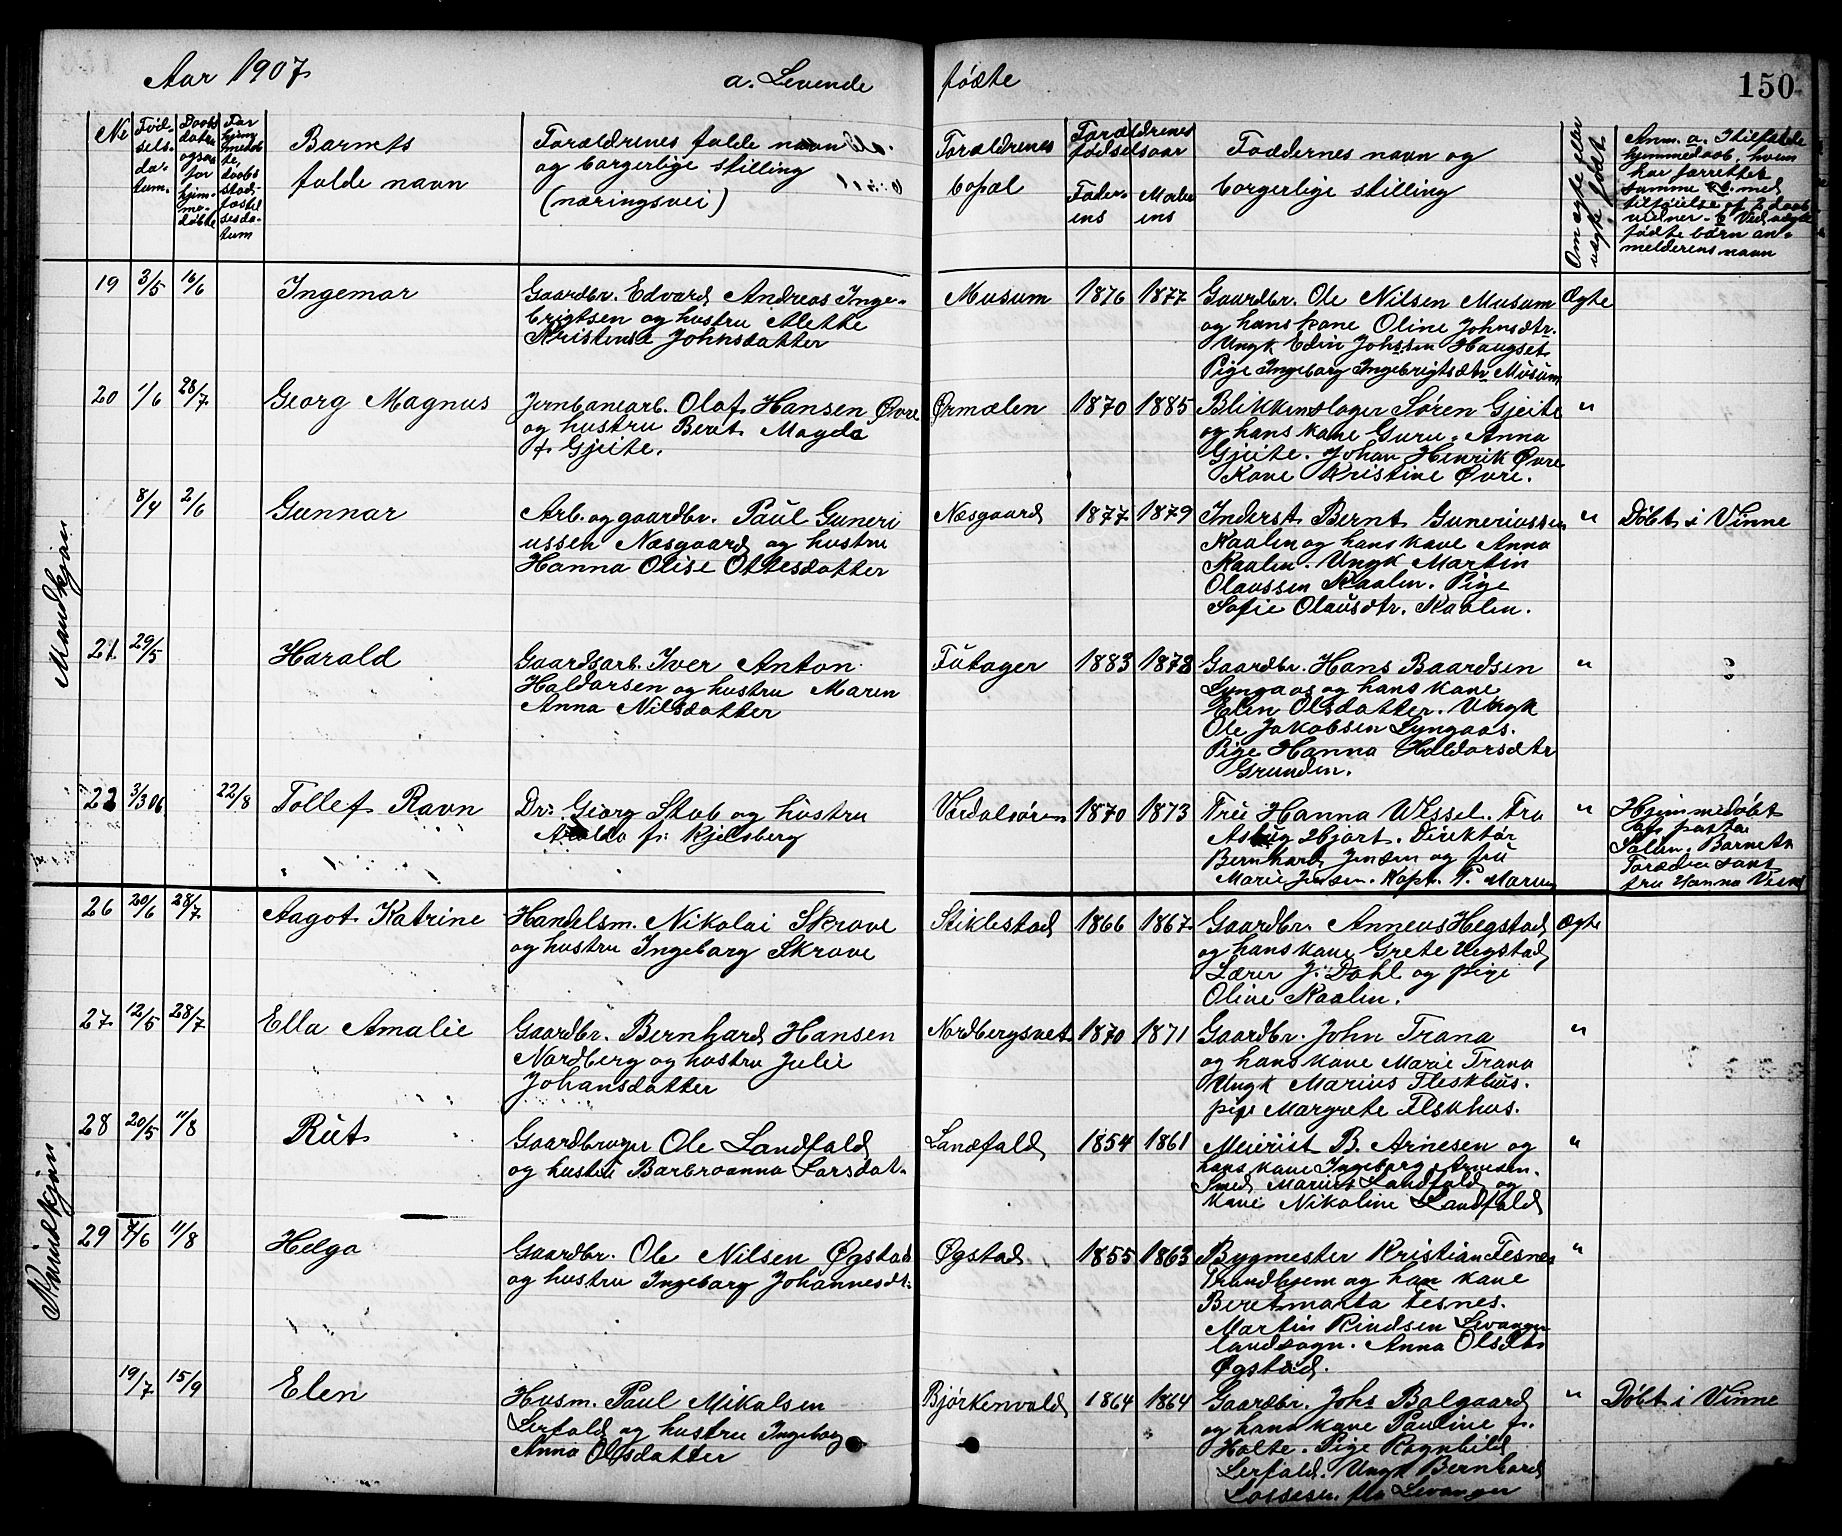 Aar 1907
a. Levende
fødte
150
No
Fød-
sels-
da-
tum.
Daabs
datum
ogsaa
for
hjem-
me-
døbte
Barnets
fulde navn
Forældrenes fulde navn
og borgerlige stilling
(næringsvei)
Forældrenes
bopæl
Forældrenes
fødselsaar
Fader-
ens
Moder
ens
Faddernes navn og
borgerlige stilling
Om ægte eller
uægte født
Anm. a. I tilfælde
hjemmedaab, hvem
har forrettet
samme med
tilføielse af 2 daabs
vidner. b Ved uægte
fødte børn an-
melderens navn
Mandkjøn
19 3/5 16/6 Ingemar
Gaardbr. Edvard Andreas Inge-
brigtsen og hustru Alette
Kristense Johnsdatter
Musum 1876 1877
Gaardbr. Ole Nilsen Musum
og hans kone Oline Johnsdtr.
Ungk Edin Johssen Haugset.
Pige Ingeborg Ingebrigtsdtr Musum
Ægte
20 1/6 28/7 Georg Magnus
Jernbanearb. Olaf Hansen Øvre
og hustru Berit Magda
f. Gjeite.
Ørmelen 1870 1885
Blikkenslager Søren Gjeite
og hans kone Guru Anna
Gjeite. Johan Henrik Øvre
Kone Kristine Øvre.
"
8/4 2/6 Gunnar
Arb. og gaardbr. Paul Guneri
ussen Næsgaard og hustru
Hanna Olise Ottesdatter
Næsgaard 1877 1879
Inderst Bernt Guneriussen
Kaalen og hans kone Anna
Kaalen. Ungk Martin
Olaussen Kaalen. Pige
Sofie Olausdtr. Kaalen.
" Døbt i Vinne
21 29/5 Harald
Gaardsarb. Iver Anton
Haldorsen og hustru Maren
Anna Nilsdatter
Fåtager 1883 1878
Gaardbr. Hans Baardsen
Lyngaas og hans kone
Elen Olsdatter. Ungk
Ole Jakobsen Lyngaas.
Pige Hanna Haldorsdtr
Grunden.
" "
22 3/3 06 22/8 Tollef Ravn
Dr. Georg Stub og hustru
f. Kjelsberg
Værdalsøren 1870 1873
Frue Hanna Wessel. Fru
Aslaug Hjort. Direktør
Bernhard Jensen og fru
Marie Jensen. Kapt. P.
" Hjemmedøbt
af pastor
Barnets
Forældre samt
fru Hanna Wessel
Kvindekjøn
26 20/6 28/7 Aagot Katrine
Handelsm. Nikolai Skrove
og hustru Ingeborg Skrove
Stiklestad 1866 1867
Gaardbr. Anneus Hegstad
og hans kone Grete Hegstad,
Lærer J. Dahl og pige
Oline Kaalen.
Ægte
27 12/5 28/7 Ella Amalie
Gaardbr. Bernhard Hansen
Nordberg og hustru Julie
Johansdatter
Nordbergsvet 1870 1871
Gaardbr. John Trana
og hans kone Marie Trana
Ungk Marius Fleskhus.
pige Margrete Fleskhus.
"
28 20/5 11/8 Rut
Gaardbruger Ole Landfald
og hustru Barbroanna Larsdat.
Landfald 1854 1861
Meierist B. Arnesen og
hans kone Ingeborg Arnesen.
Smed Marius Landfald og
kone Nikoline Landfald
"
29 7/6 11/8 Helga
Gaardbr. Ole Nilsen Øgstad
og hustru Ingeborg Johannesdt.
Øgstad 1855 1863
Bygmester Kristian Fesnes
Trondhjem og han kone
Beretmarta Fesnes.
Martin Rindsen Levanger
landsogn. Anna Olsdtr
Øgstad.
"
19/7 15/9 Elen
Husm. Paul Mikalsen
Lerfald og hustru Ingeborg
Anna Olsdatter
Bjørkenvald 1864 1864
Gaardbr. Johs Balgaard
og hans kone Pauline f.
Holte. Pige Ragnhild
Lerfald. Ungk Bernhard
Lassesen. fra Levanger
" Døbt i Vinne